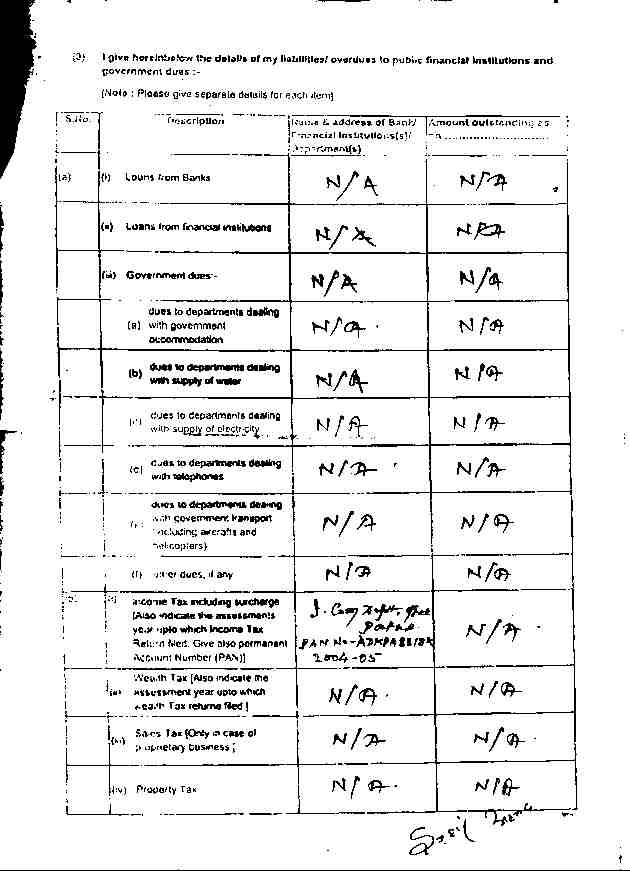 (3) I give hereinbelow the details of my liabilities/ overdues to public financial institutions and
government dues :-
(Note : Please give separate details for each item)
S.No. Description Name & address of Bank/
Financial Institutions(s)/
Department(s) Amount outstanding as
on
(a) (i) Loans from Banks N/A N/A
(ii) Loans from financial institutions N/A N/A
(iii) Government dues:- N/A N/A
dues to departments dealing
(a) with government
accommodation N/A N/A
(b) dues to departments dealing
with supply of water N/A N/A
dues to departments dealing
with supply of electricity N/A N/A
dues to departments dealing
with telephones N/A N/A
dues to departments dealing
with government transport
(including aircrafts and
helicopters) N/A N/A
(f) other dues, if any N/A N/A
Income Tax including surcharge
[Also indicate the assessments
year upto which Income Tax
Return filed. Give also permanent
Account Number (PAN)] PAN No-
2004-05 N/A
(ii) Wealth Tax [Also indicate the
assessment year upto which
wealth Tax returns filed] N/A N/A
(iii) Sales Tax [Only in case of
proprietary business] N/A N/A
(iv) Property Tax N/A N/A